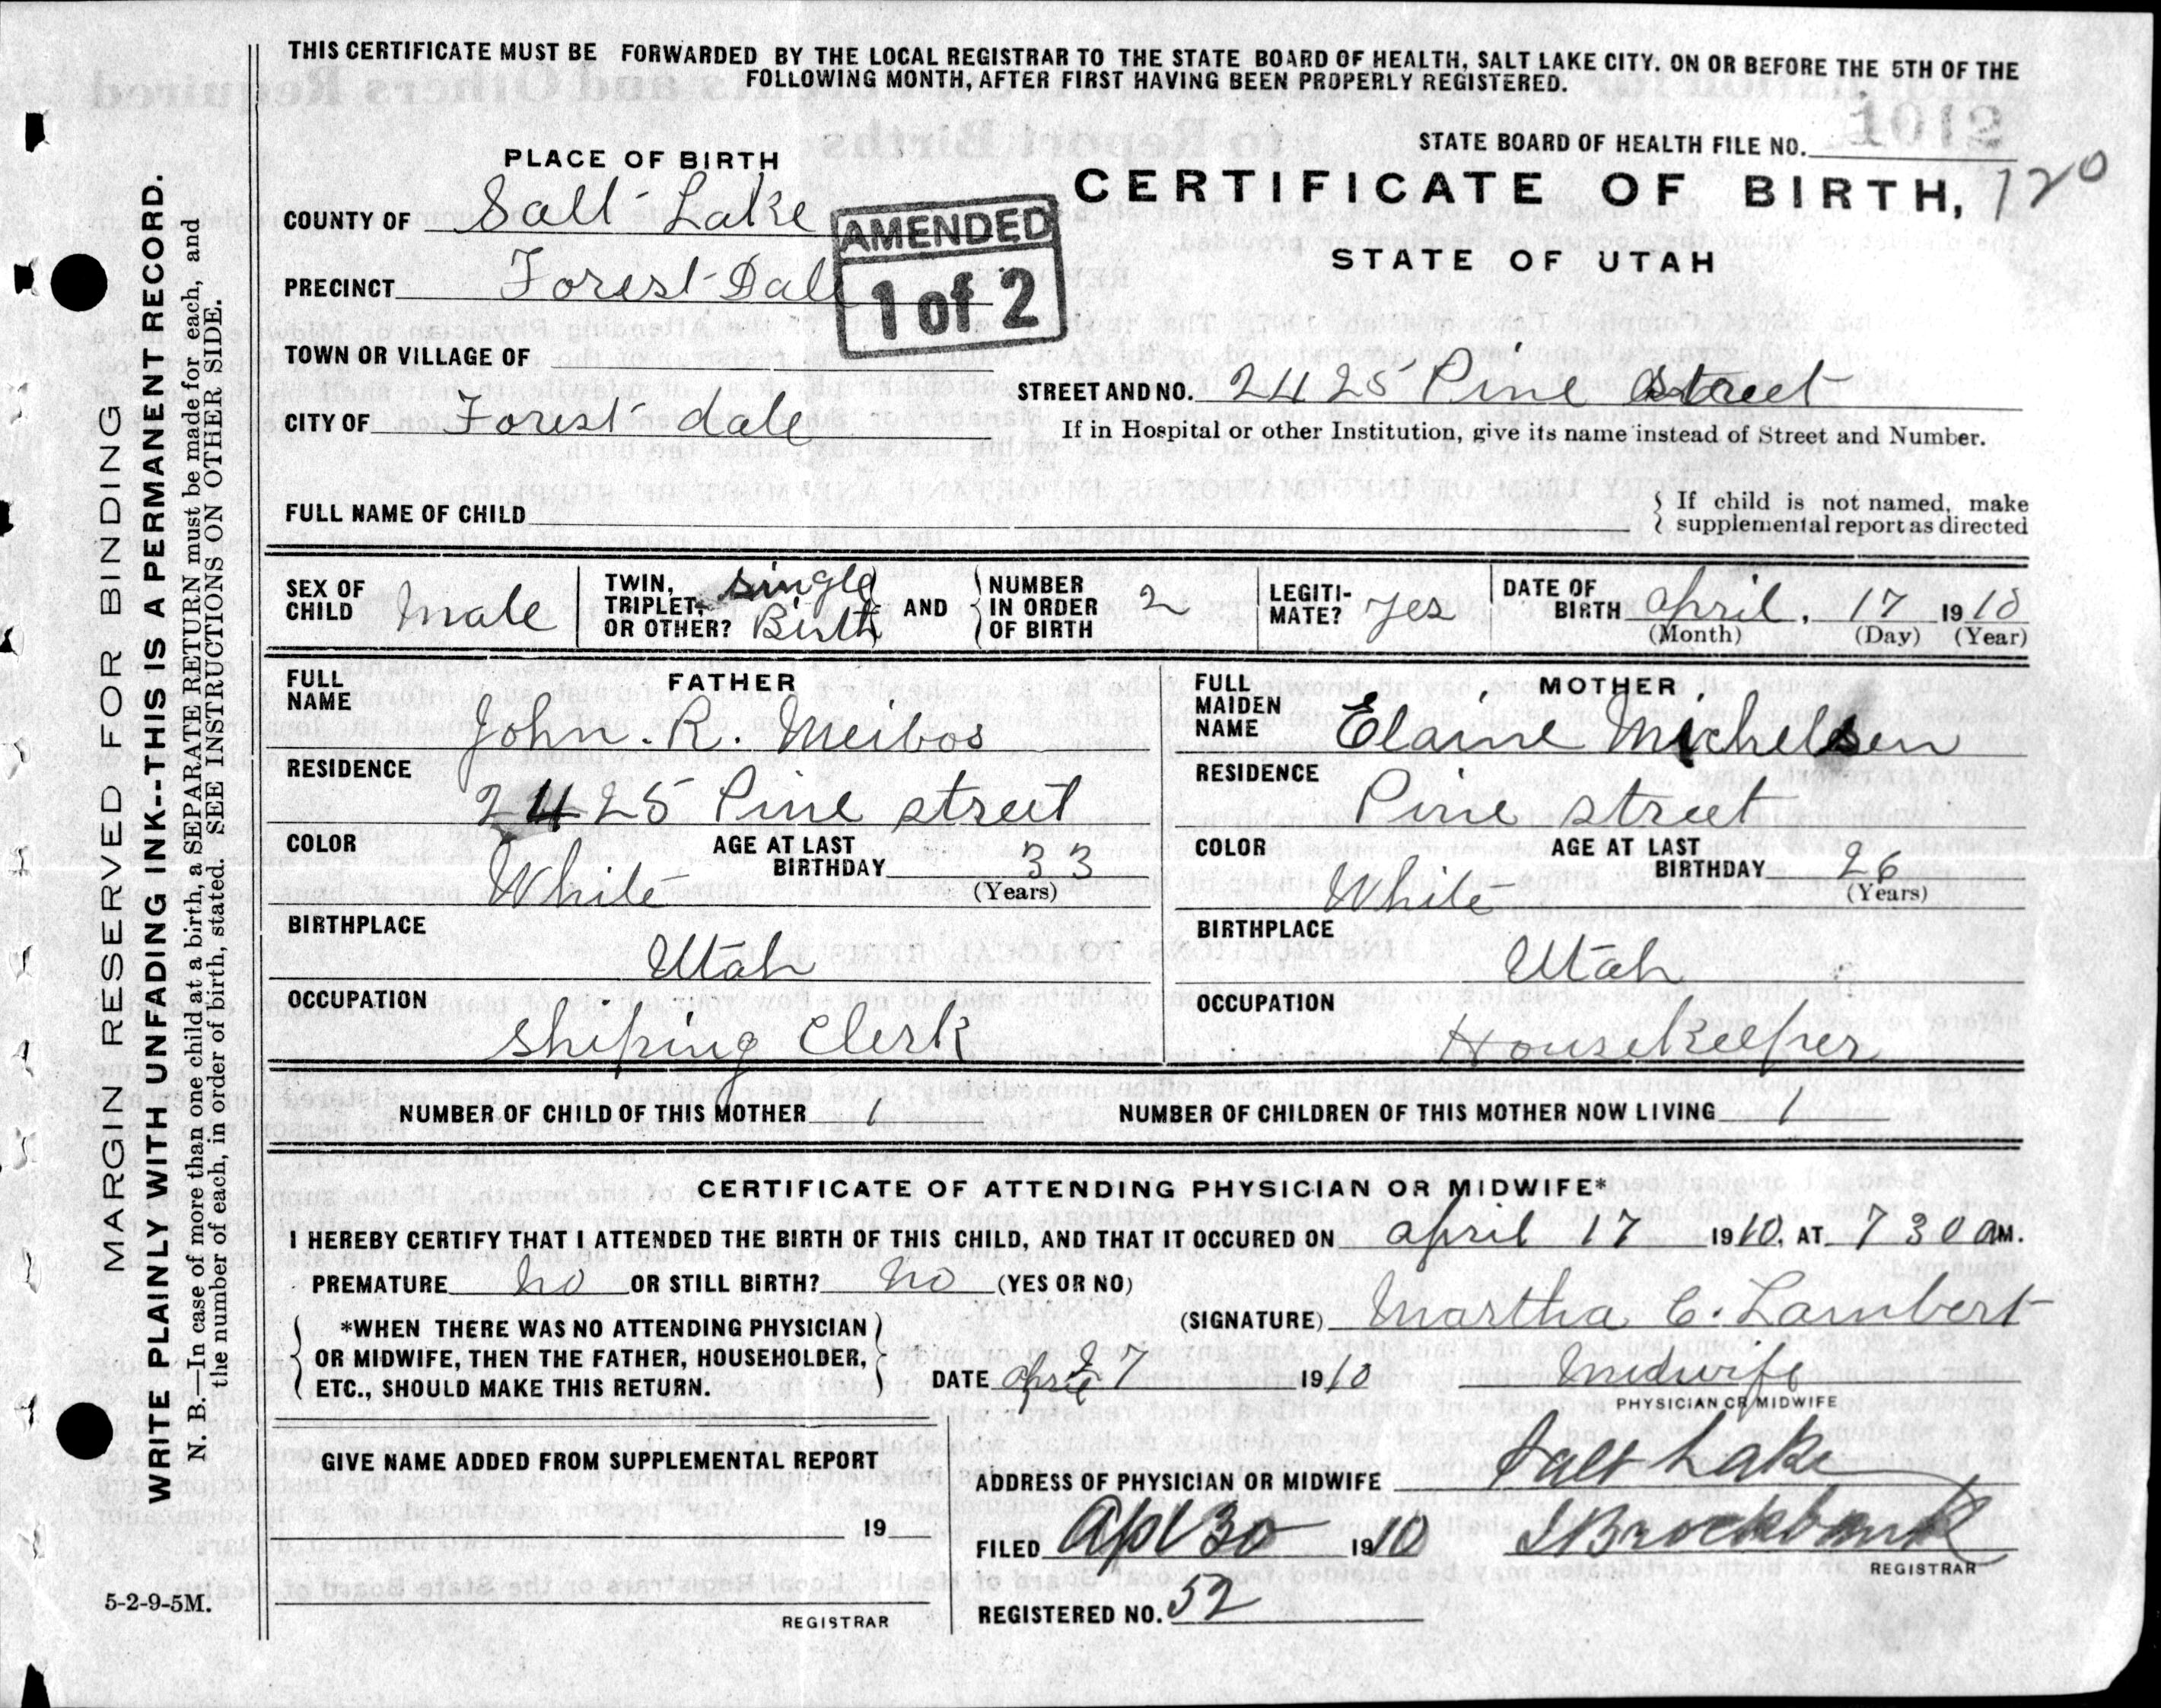 THIS CERTIFICATE MUST BE FORWARDED BY THE LOCAL REGISTRAR TO THE STATE BOARD OF HEALTH, SALT LAKE CITY. ON OR BEFORE THE 5TH OF THE
FOLLOWING MONTH, AFTER FIRST HAVING BEEN PROPERLY REGISTERED.
STATE BOARD OF HEALTH FILE NO. 1012
PLACE OF BIRTH
CERTIFICATE OF BIRTH, 120
COUNTY OF Salt Lake
AMENDED
1 of 2
STATE OF UTAH
PRECINCT Forest Dale
TOWN OR VILLAGE OF
STREET AND NO. 2425 Pine Street
CITY OF Forest dale
If in Hospital or other Institution, give its name instead of Street and Number.
FULL NAME OF CHILD
If child is not named, make
supplemental report as directed
SEX OF CHILD Male
TWIN, TRIPLET, OR OTHER? single Birth
AND
NUMBER IN ORDER OF BIRTH 2
LEGITI-MATE? yes
DATE OF BIRTH April, 17 1910
(Month) (Day) (Year)
FATHER
FULL NAME John. R. Meibos
RESIDENCE 2425 Pine street
COLOR White
AGE AT LAST BIRTHDAY 33
(Years)
BIRTHPLACE Utah
OCCUPATION shiping Clerk
MOTHER
FULL MAIDEN NAME Elaine Michelsen
RESIDENCE Pine street
COLOR White
AGE AT LAST BIRTHDAY 26
(Years)
BIRTHPLACE Utah
OCCUPATION Housekeeper
NUMBER OF CHILD OF THIS MOTHER 1 NUMBER OF CHILDREN OF THIS MOTHER NOW LIVING 1
CERTIFICATE OF ATTENDING PHYSICIAN OR MIDWIFE*
I HEREBY CERTIFY THAT I ATTENDED THE BIRTH OF THIS CHILD, AND THAT IT OCCURED ON april 17 1910, AT 7 30 a M.
PREMATURE no OR STILL BIRTH? no (YES OR NO)
*WHEN THERE WAS NO ATTENDING PHYSICIAN
OR MIDWIFE, THEN THE FATHER, HOUSEHOLDER,
ETC., SHOULD MAKE THIS RETURN.
(SIGNATURE) Martha C. Lambert
DATE 1910
Midwife
PHYSICIAN OR MIDWIFE
GIVE NAME ADDED FROM SUPPLEMENTAL REPORT
19
REGISTRAR
ADDRESS OF PHYSICIAN OR MIDWIFE Salt Lake
FILED Apl 30 1910 Brockbank
REGISTRAR
REGISTERED NO. 52
5-2-9-5M.
MARGIN RESERVED FOR BINDING
WRITE PLAINLY WITH UNFADING INK--THIS IS A PERMANENT RECORD.
N. B.—In case of more than one child at a birth, a SEPARATE RETURN must be made for each, and
the number of each, in order of birth, stated. SEE INSTRUCTIONS ON OTHER SIDE.